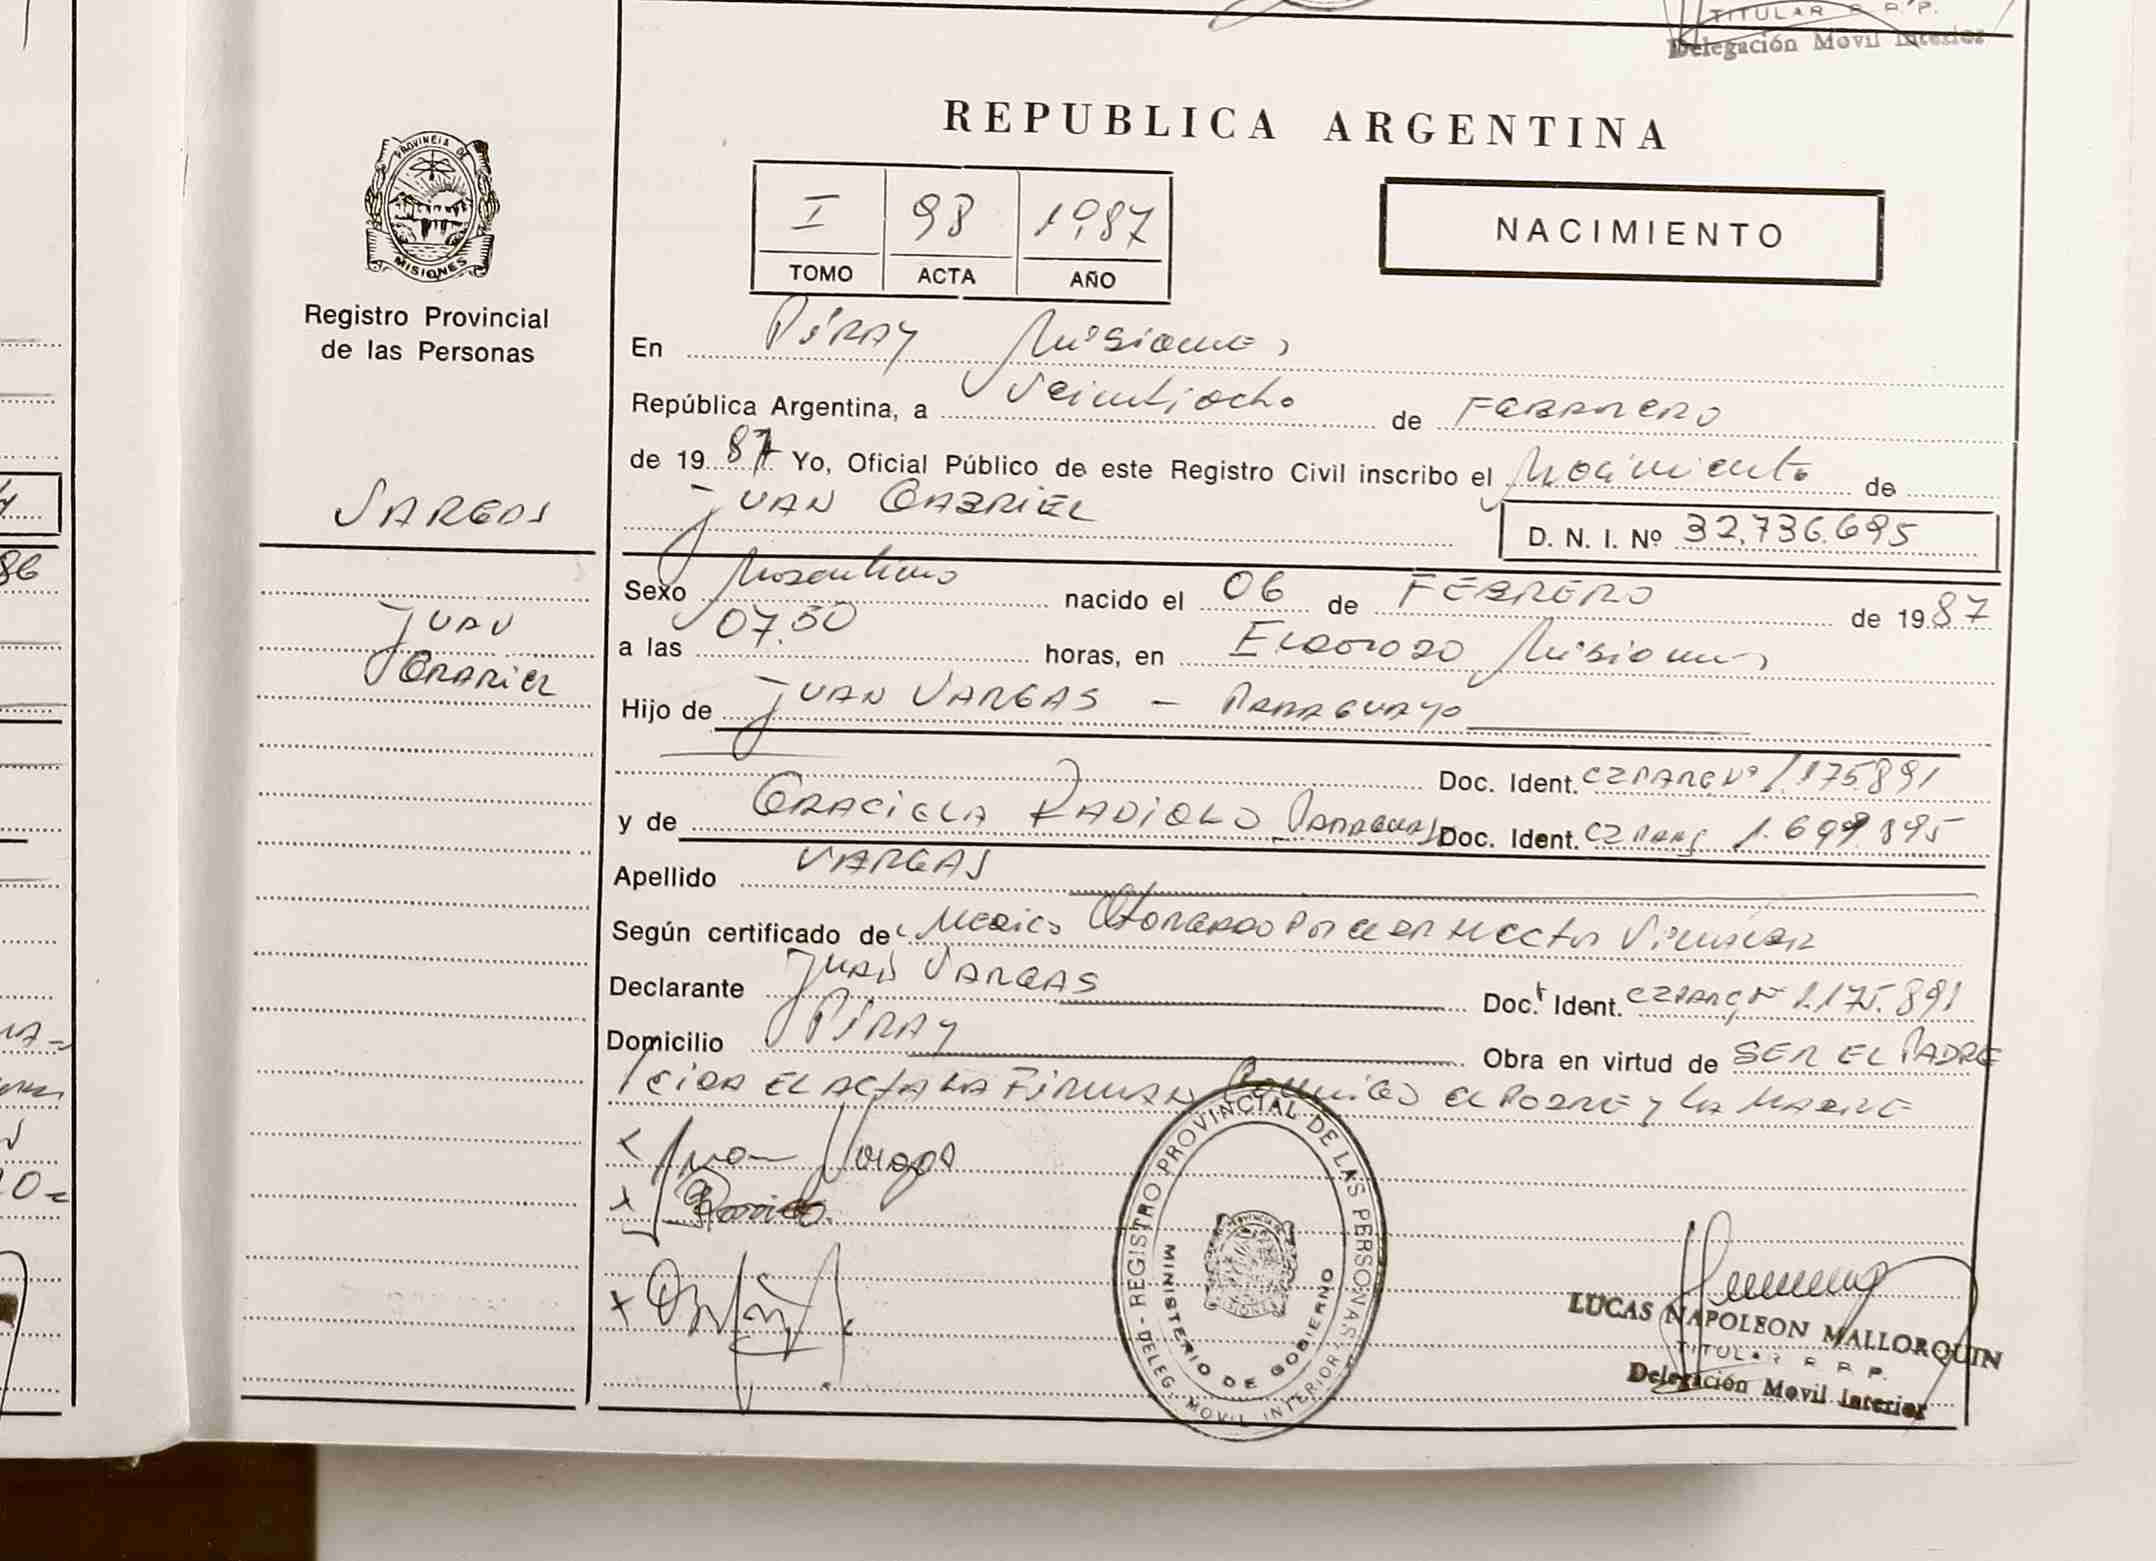 TITULAR R. R. P.
Delegación Movil Interior
REPUBLICA ARGENTINA
PROVINCIA DE
MISIONES
Registro Provincial
de las Personas
I 98 1987
TOMO ACTA AÑO
NACIMIENTO
En Piray Misiones,
República Argentina, a Veintiocho de FEBRRERO
de 1987 Yo, Oficial Público de este Registro Civil inscribo el Nacimiento de
JUAN GABRIEL
D. N. I. Nº 32.736.695
VARGAS
JUAN
GABRIEL
Sexo Masculino nacido el 06 de FEBRERO de 1987
a las 07.50 horas, en Eldorado Misiones
Hijo de JUAN VARGAS – PARAGUAYO
Doc. Ident. CI PARG Nº 1.175.891
y de GRACIELA Doc. Ident. CI PARG 1.699.895
Apellido VARGAS
Según certificado de Medico Otorgado por el DR Hector
Declarante Juan VARGAS Doc. Ident. CI PARG Nº 1.175.891
Domicilio PIRAY Obra en virtud de SER EL PADRE
leida EL ACTA LA FIRMAN conmigo el PADRE y la MADRE
x Juan Vargas
x
x
REGISTRO PROVINCIAL DE LAS PERSONAS
- DELEG. MOVIL INTERIOR -
MINISTERIO DE GOBIERNO
LUCAS NAPOLEON MALLORQUIN
TITULAR R. R. P.
Delegación Movil Interior
86